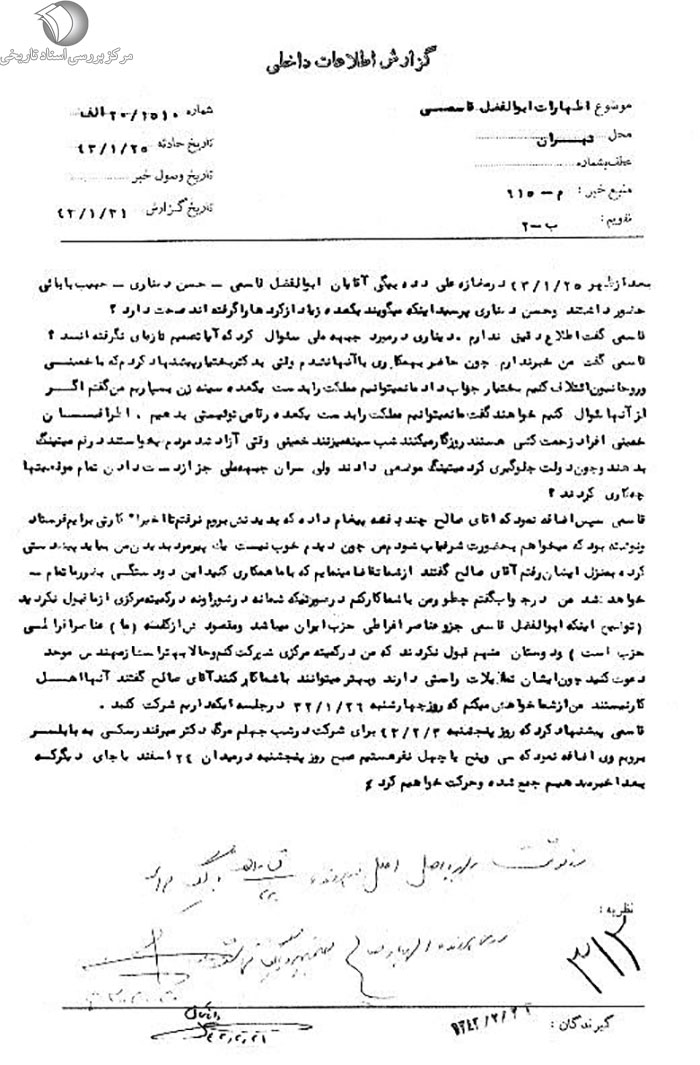 مرکز بررسی اسناد تاریخی
گزارش اطلاعات داخلی
موضوع اظهارات ابوالفضل قاسمی
شماره ۲۰/۲۵۱۰ الف
محل تهران
تاریخ حادثه ۴۳/۱/۲۵
عطف بشماره
تاریخ وصول خبر
منبع خبر : م – ۶۱۵
تاریخ گزارش ۴۳/۱/۳۱
تقویم : ب – ۲
بعد از ظهر ۴۳/۱/۲۵ در مغازه علی دده بیگی آقایان ابوالفضل قاسمی – حسن دیناری – حبیب بابائی
حضور داشتند وحسن دیناری پرسید اینکه میگویند یکعده زیاد از کردها را گرفته اند صحت دارد ؟
قاسمی گفت اطلاع دقیق ندارم . دیناری در مورد جبهه ملی سئوال کرد که آیا تصمیم تازهای نگرفته اند ؟
قاسمی گفت من خبر ندارم چون حاضر بهمکاری با آنها نشدم وقتی بدکتر بختیار پیشنهاد کردم که با خمینی
وروحانیون ائتلاف کنیم بختیار جواب داد ما نمیتوانیم مملکت را بدست یکعده سینه زن بسپاریم من گفتم اگر
از آنها سئوال کنیم خواهند گفت ما نمیتوانیم مملکت را بدست یکعده رقاص تویستی بدهیم . اطرافیان
خمینی افراد زحمت کشی هستند روز کار میکنند شب سینه میزنند خمینی وقتی آزاد شد مردم میخواستند در قم میتینگ
بدهند وچون دولت جلوگیری کرد میتینگ موضعی دادند ولی سران جبهه ملی جز از دست دادن تمام موقعیتها
چکاری کردند ؟
قاسمی سپس اضافه نمود که آقای صالح چند دفعه پیغام داده که بدیدنش بروم نرفتم تا اخیرا" کارتی برایم فرستاد
ونوشته بود که میخواهم بحضورت شرفیاب شوم من چون دیدم خوب نیست یک پیرمرد بدیدن من بیاید پیشدستی
کرده بمنزل ایشان رفتم آقای صالح گفتند از شما تقاضا مینمایم که با ما همکاری کنید این دو دستگی بضرر ما تمام –
خواهد شد من در جواب گفتم چطور من با شما کار کنم در صورتیکه شما نه در شورا و نه در کمیته مرکزی از ما قبول نکردید
( توضیح اینکه ابوالفضل قاسمی جزو عناصر افراطی حزب ایران میباشد ومقصودش از کلمه ( ما ) عناصر افراطی
حزب است ) ودوستان متهم قبول نکردند که من در کمیته مرکزی شرکت کنم وحالا بهتر است از مهندس موحد
دعوت کنید چون ایشان تمایلات راستی دارند وبهتر میتوانند با شما کار کنند آقای صالح گفتند آنها اهل
کار نیستند من از شما خواهش میکنم که روز چهارشنبه ۴۲/۱/۲۶ در جلسه ایکه داریم شرکت کنید .
قاسمی پیشنهاد کرد که روز پنجشنبه ۴۳/۲/۳ برای شرکت در شب چهلم مرگ دکتر میرفندرسکی به بابلسر
برویم وی اضافه نمود که سی وپنج یا چهل نفر هستیم صبح روز پنجشنبه در میدان ۲۴ اسفند یا جای دیگر که
بعدا خبر میدهیم جمع شده وحرکت خواهیم کرد
نظریه :
۳۱۲
گیرندگان :